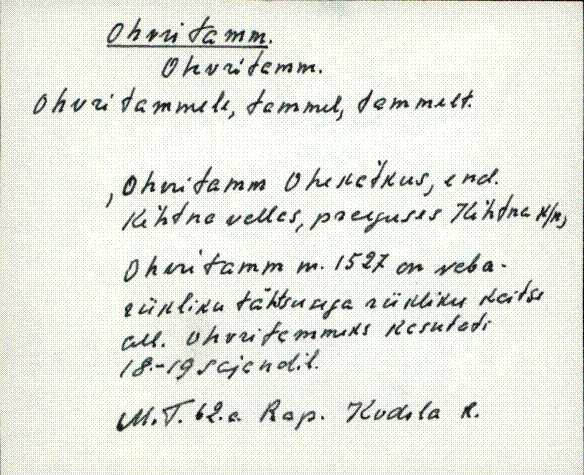 Ohvritamm.
Ohvritamm.
Ohvritammele, tammel, tammelt.
, Ohvritamm Ohekatkus, end.
Kehtna vallas, praeguses Kehtna k/n,
Ohvritamm nr. 1527 on vaba-
riikliku tähtsusega riikliku kaitse
all. Ohvritammeks kasutati
18.-19 sajandil.
M.T. 62.a Rap. Kodila k.